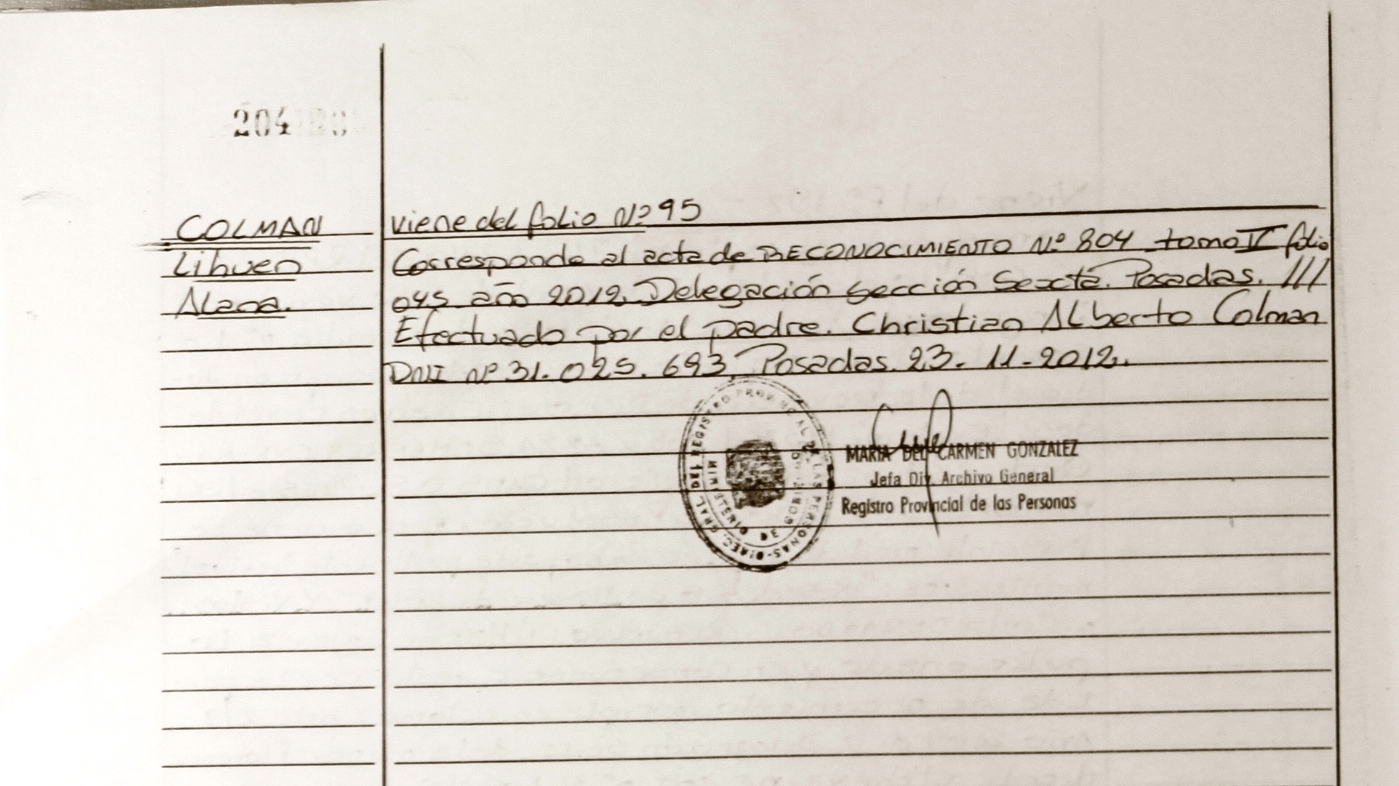 204
COLMAN
Lihuen
Alana.
viene del folio Nº 95
Corresponde al acta de RECONOCIMIENTO Nº 804 tomo V folio
045 año 2012. Delegación Sección Sexta. Posadas. ///
Efectuado por el padre. Christian Alberto Colman
DNI Nº 31.025.693. Posadas. 23-11-2012.
DIREC. GRAL DEL REGISTRO PROVINCIAL DE LAS PERSONAS
MINISTERIO DE GOBIERNO
MARIA DEL CARMEN GONZALEZ
Jefa Div. Archivo General
Registro Provincial de las Personas